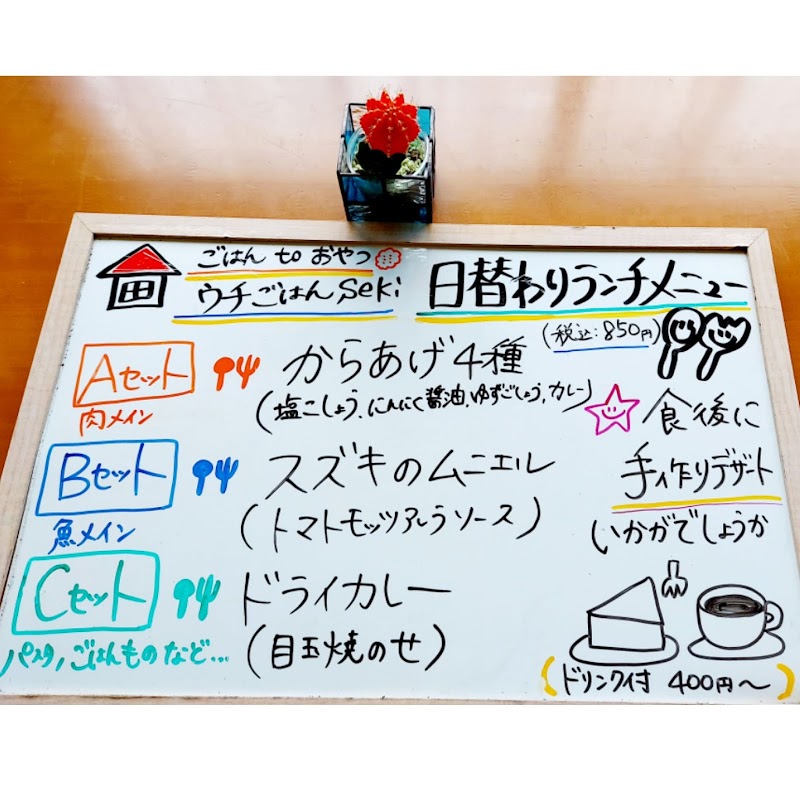 ごはん to おやつ
ウチごはん Seki
日替わりランチメニュー
(税込:850円)
Aセット
肉メイン
からあげ4種
(塩こしょう、にんにく醤油、ゆずごしょう、カレー)
Bセット
魚メイン
スズキのムニエル
(トマトモッツアレラソース)
Cセット
パスタ、ごはんものなど...
ドライカレー
(目玉焼のせ)
食後に
手作りデザート
いかがでしょうか
(ドリンク付 400円〜)